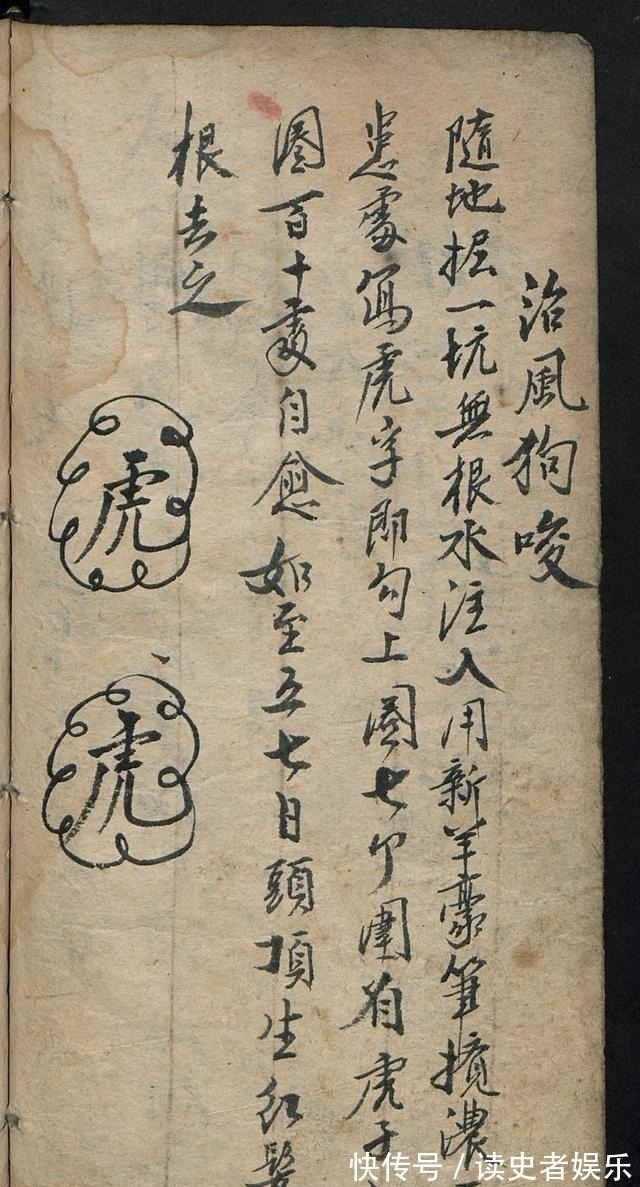 治風狗咬
隨地掘一坑無根水注入用新羊毫筆攪濃
患處寫虎字即勾上圈七个圍着虎字
圈百十變自愈如至五七日頭頂生红髮
根去之
虎
虎
快传号/读史者娱乐